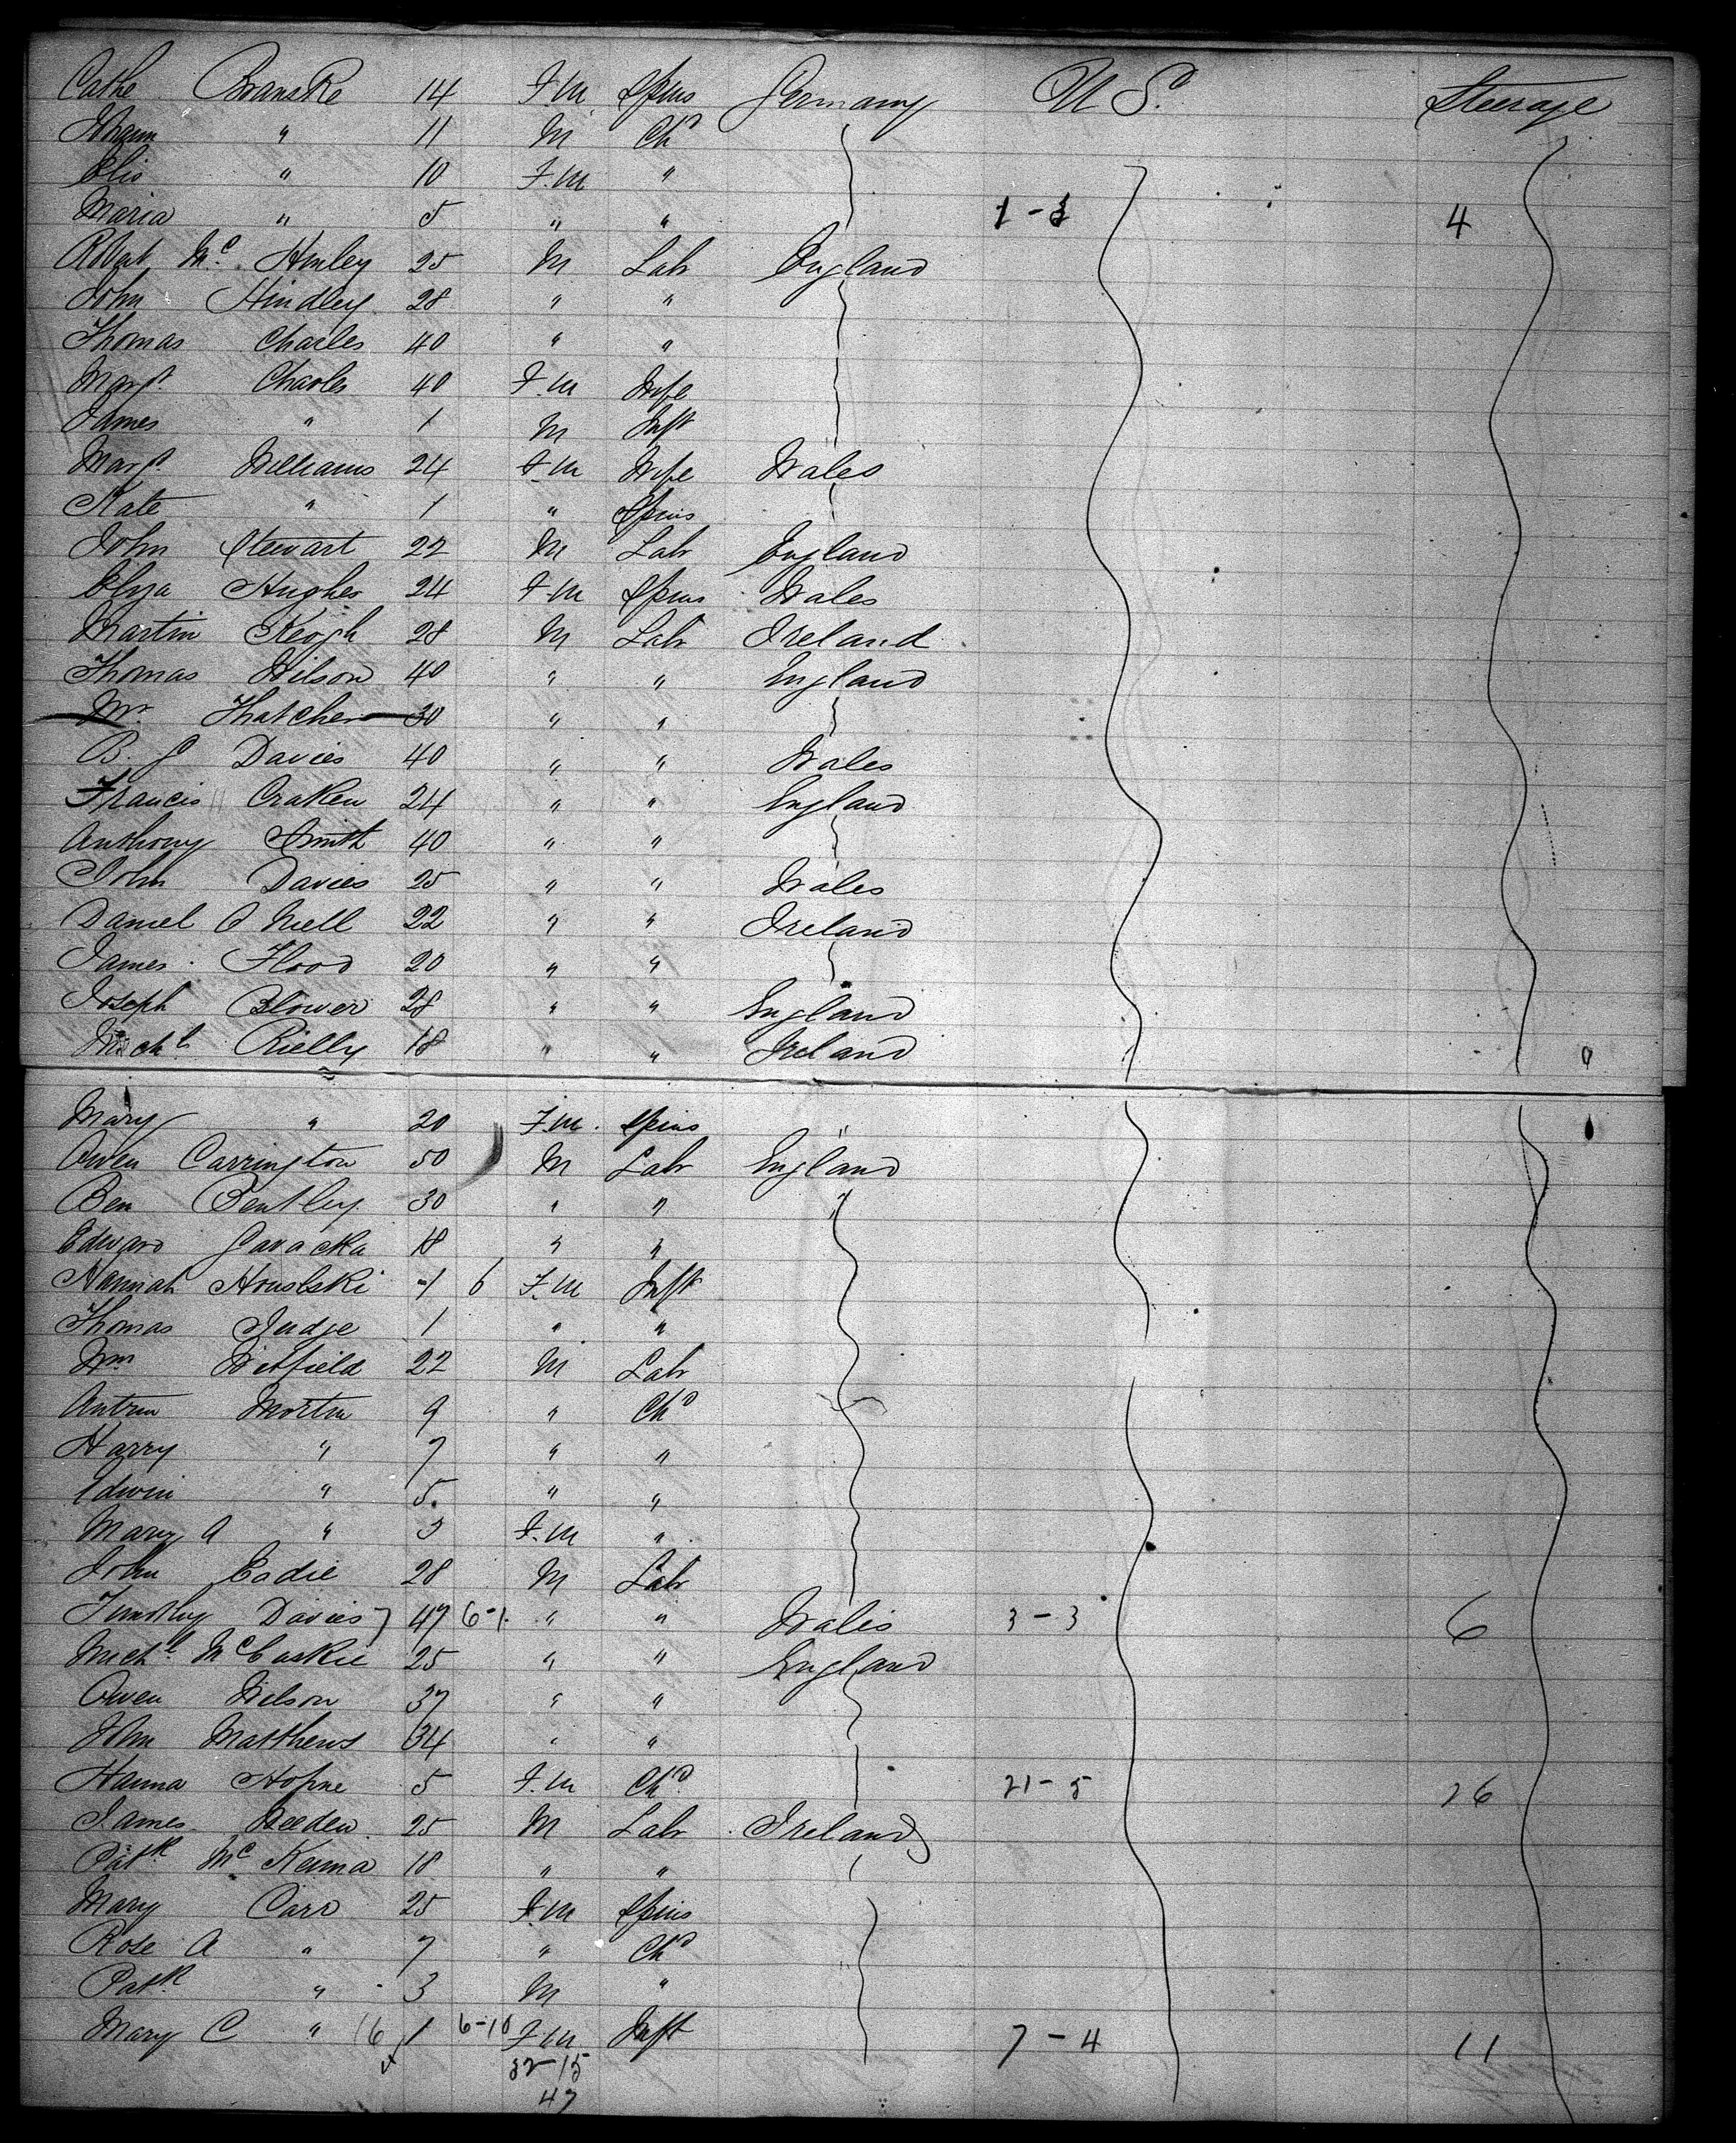 Cathe Branske 14 F.M. Spins Germany U S. Steerage
Johann " 11 M Chd
Elis " 10 F.M "
Maria " 5 " " 1 - 3 4
Robert Mc Hinley 25 M Labr England
John Hindley 28 " "
Thomas Charles 40 " "
Margt. Charles 40 F.M Wife
James " 1 M Inft
Margt. Williams 24 F.M Wife Wales
Kate " 1 " Spins
John Stewart 22 M Labr England
Eliza Hughes 24 F.M Spins Wales
Martin Keogh 28 M Labr Ireland
Thomas Wilson 40 " " England
Mr. Thatcher 30 " "
B. J Davies 40 " " Wales
Francis Craken 24 " " England
Anthony Smith 40 " "
John Davies 25 " " Wales
Daniel O Niell 22 " " Ireland
James Flood 20 " "
Joseph Blower 28 " " England
Michl Rielly 18 " " Ireland
Mary " 20 F.M. Spins "
Owen Carrington 50 M Labr England
Ben Bentley 30 " " "
Edward Javacka 18 " "
Hannah Houslski 1 6 F.M Inft
Thomas Judge 1 " "
Wm Hetfield 22 M Labr
Antrim Mortin 9 " Chd
Harry " 7 " "
Edwin " 5. " "
Mary A " 3 F.M "
John Eadie 28 M Labr
Timothy Davies 7 47 6-1 " " Wales 3 - 3 6
Michl McCaskie 25 " " England
Owen Wilson 37 " "
John Matthews 34 " "
Hanna Hopne 5 F.M Chd 21 - 5 26
James Reeden 25 M Labr Ireland
Patk Mc Kenna 18 " "
Mary Carr 25 F.M Spins
Rose A " 7 " Chd
Patk " 3 M "
Mary C " 16 1 6-10 F.M Inft 7 - 4 11
32-15
47